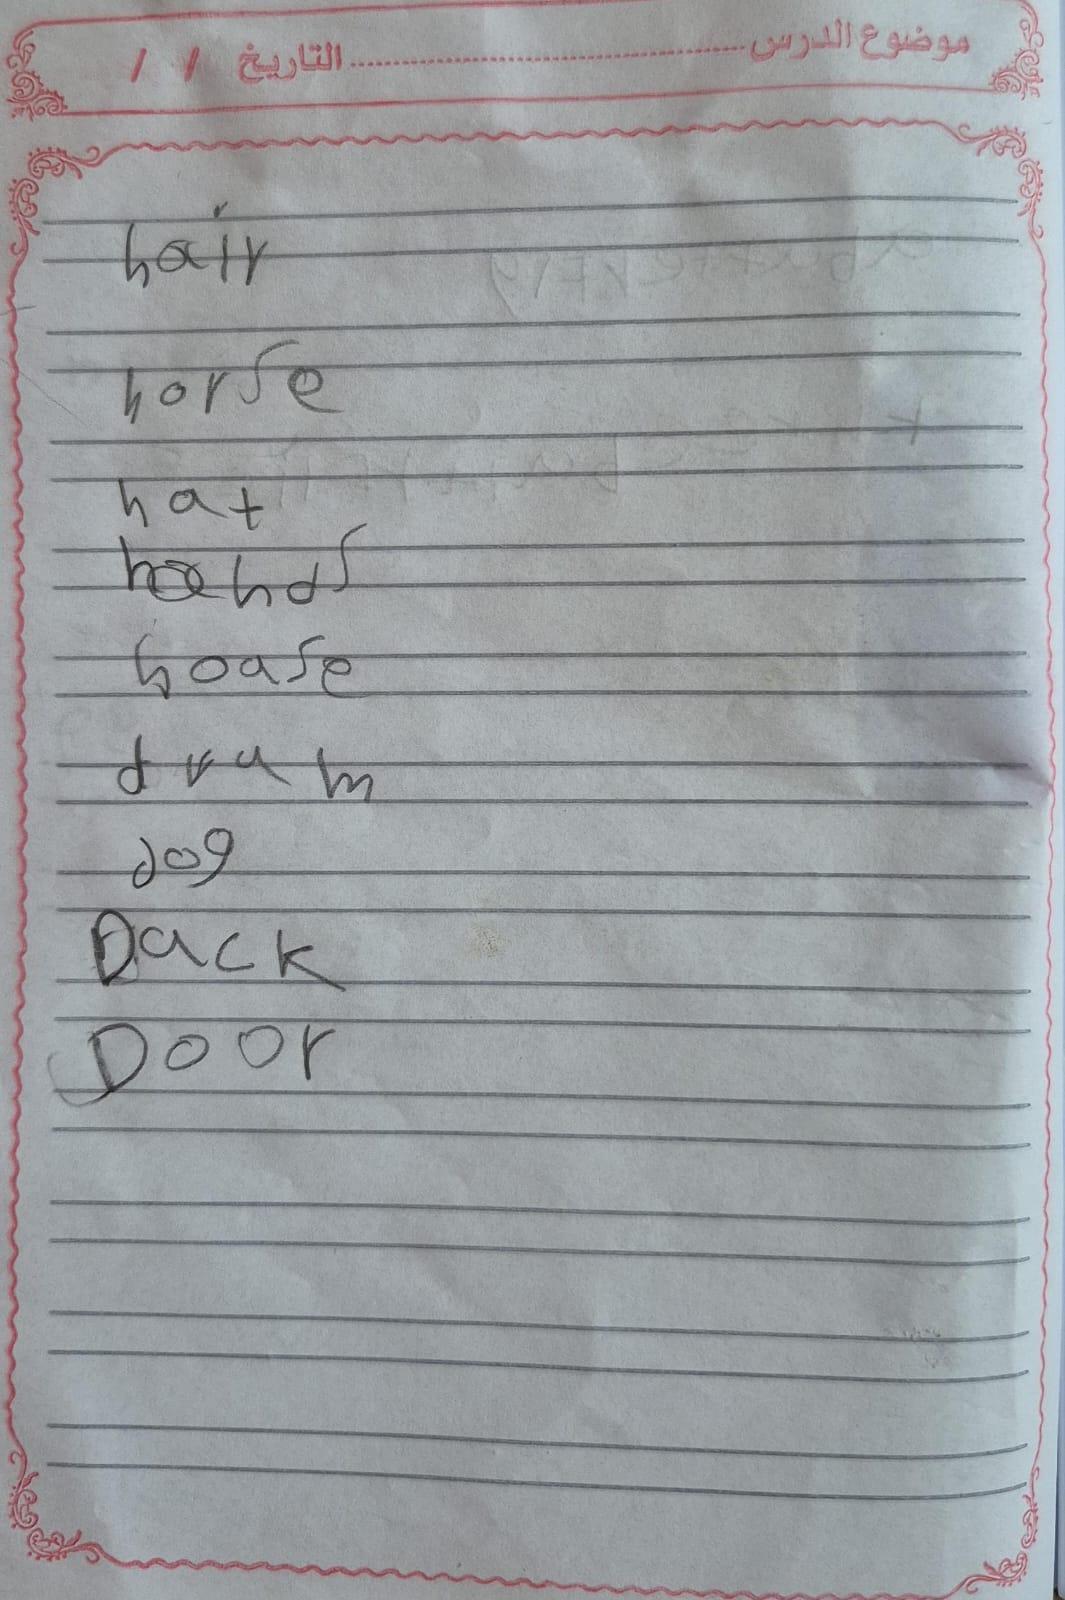 موضوع الدرس ........................ التاريخ / /
hair
horse
hat
hands
hoase
drum
dog
Duck
Door